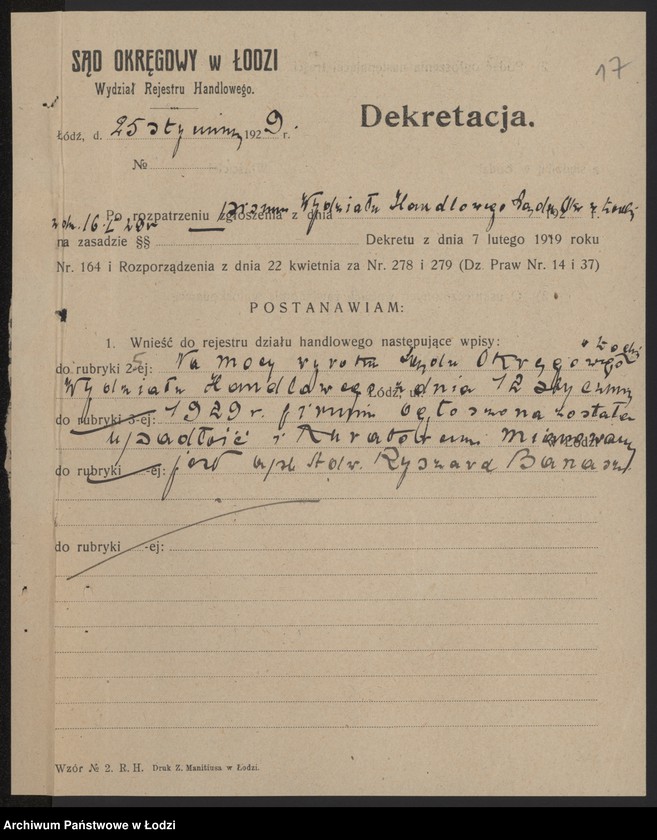 SĄD OKRĘGOWY w ŁODZI
Wydział Rejestru Handlowego.
17
Dekretacja.
Łódź, d. 25 stycznia 1929 r.
№
Po rozpatrzeniu zgłoszenia z dnia pisma Wydziału Handlowego Sądu Okr. z Łodzi
z dn. 16.I 29 r
na zasadzie §§ Dekretu z dnia 7 lutego 1919 roku
Nr. 164 i Rozporządzenia z dnia 22 kwietnia za Nr. 278 i 279 (Dz. Praw Nr. 14 i 37)
POSTANAWIAM:
1. Wnieść do rejestru działu handlowego następujące wpisy:
do rubryki 5-ej: Na mocy wyroku Sądu Okręgowego w Łodzi
Wydziału Handlowego z dnia 12 stycznia
do rubryki 3-ej: 1929 r. firmie ogłoszona została
upadłość i Kuratorem mianowany
do rubryki -ej: jest apl. adw. Ryszard Banasz
do rubryki -ej:
Wzór № 2. R. H. Druk Z. Manitiusa w Łodzi.
Archiwum Państwowe w Łodzi